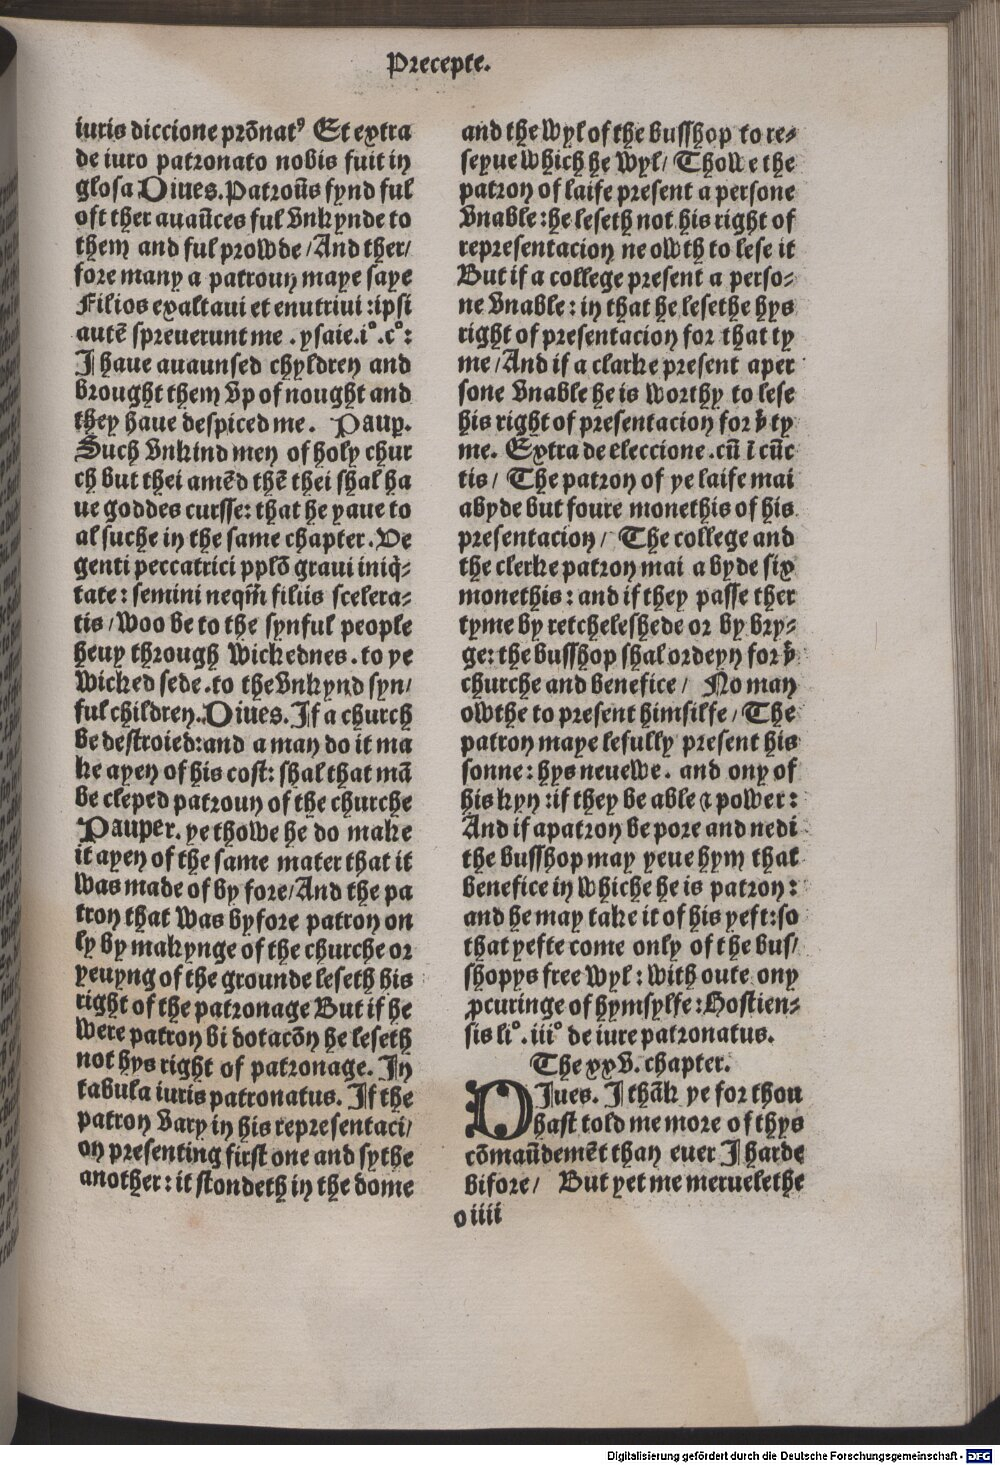 Precepte.
iuris diccione prōnatꝰ Et extra
de iuro patronato nobis fuit in
glosa Diues. Patroūs fynd ful
oft ther auaūces ful vnkynde to
them and ful prowde / And ther/
fore many a patroun maye saye
Filios exaltaui et enutriui : ipsi
autē spreuerunt me . ysaie.i°.c°:
I haue auaunsed chyldren and
brought them vp of nought and
they haue despiced me. Pauꝑ.
Such vnkind men of holy chur
ch but thei amēd thē thei shal ha
ue goddes cursse: that he yaue to
al suche in the same chapter. Ve
genti peccatrici pplō graui iniq̇⸗
tate: semini neqm̄ filiis scelera⸗
tis / woo be to the synful people
heuy through wickednes. to ye
wicked sede. to the vnkynd syn/
ful children. Diues. If a church
be destroied: and a man do it ma
ke ayen of his cost: shal that mā
be cleped patroun of the churche
Pauper. ye thowe he do make
it ayen of the same mater that it
was made of by fore / And the pa
tron that was byfore patron on
ly by makynge of the churche or
yeuyng of the grounde leseth his
right of the patronage But if he
were patron bi dotacōn he leseth
not hys right of patronage. In
tabula iuris patronatus. If the
patron vary in his representaci/
on presenting first one and sythe
another: it stondeth in the dome
and the wyl of the busshop to re⸗
seyue which he wyl / Thowe the
patron of laife present a persone
vnable: he leseth not his right of
representacion ne owth to lese it
But if a college present a perso⸗
ne vnable: in that he lesethe hys
right of presentacion for that ty
me / And if a clarke present aper
sone vnable he is worthy to lese
his right of presentacion for þͭ ty
me. Extra de eleccione. cū ī cūc
tis / The patron of ye laife mai
abyde but foure monethis of his
presentacion / The college and
the clerke patron mai abyde six
monethis: and if they passe ther
tyme by retcheleshede or by bry⸗
ge: the busshop shal ordeyn for þͭ
churche and benefice / No man
owthe to present himsilfe / The
patron maye lefully present his
sonne: hys neuewe. and ony of
his kyn: if they be able ⁊ power:
And if apatron be pore and nedi
the busshop may yeue hym that
benefice in whiche he is patron:
and he may take it of his yeft: so
that yefte come only of the bus/
shopys free wyl: with oute ony
ꝓcuringe of hymsylfe: Hostien⸗
sis li°. iii° de iure patronatus.
The xxv. chapter.
DIues. I thāk ye for thou
hast told me more of thys
cōmaūdemēt than euer I harde
bifore / But yet me meruelethe
o iiii
Digitalisierung gefördert durch die Deutsche Forschungsgemeinschaft - DFG